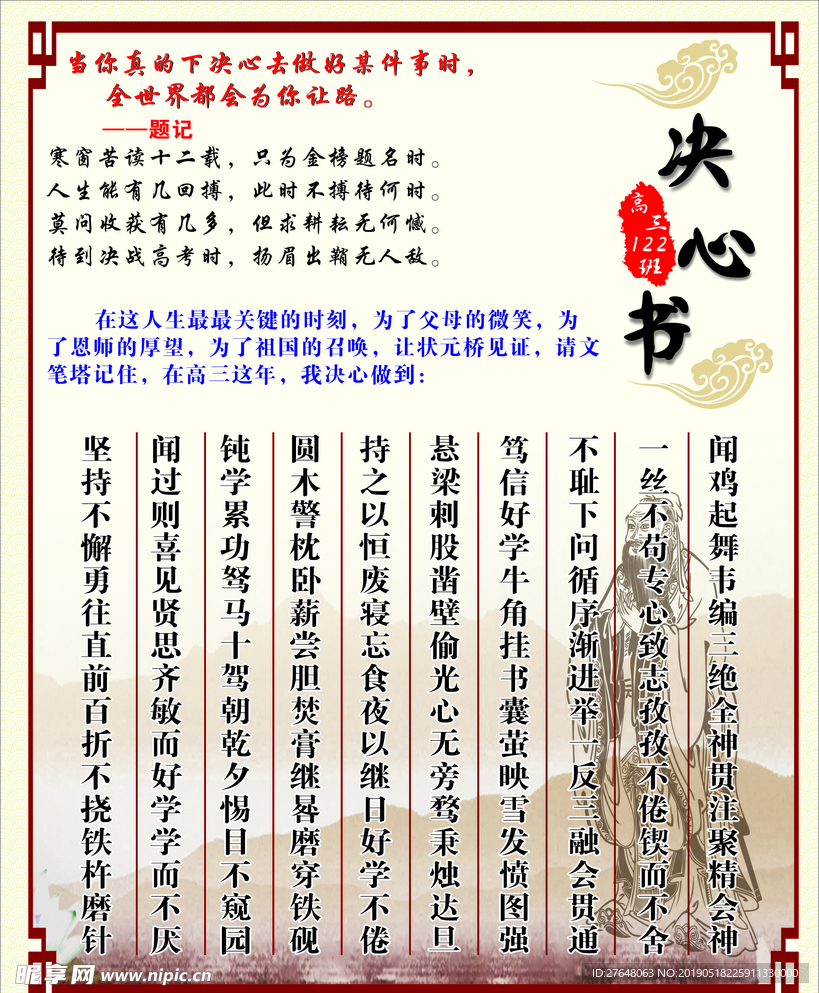 当你真的下决心去做好某件事时，
全世界都会为你让路。
——题记
寒窗苦读十二载，只为金榜题名时。
人生能有几回搏，此时不搏待何时。
莫问收获有几多，但求耕耘无何憾。
待到决战高考时，扬眉出鞘无人敌。
决心书
高三
122
班
在这人生最最关键的时刻，为了父母的微笑，为
了恩师的厚望，为了祖国的召唤，让状元桥见证，请文
笔塔记住，在高三这年，我决心做到：
闻鸡起舞韦编三绝全神贯注聚精会神
一丝不苟专心致志孜孜不倦锲而不舍
不耻下问循序渐进举一反三融会贯通
笃信好学牛角挂书囊萤映雪发愤图强
悬梁刺股凿壁偷光心无旁骛秉烛达旦
持之以恒废寝忘食夜以继日好学不倦
圆木警枕卧薪尝胆焚膏继晷磨穿铁砚
钝学累功驽马十驾朝乾夕惕目不窥园
闻过则喜见贤思齐敏而好学学而不厌
坚持不懈勇往直前百折不挠铁杵磨针
昵享网 www.nipic.cn
ID:27648063 NO:20190518225911330000